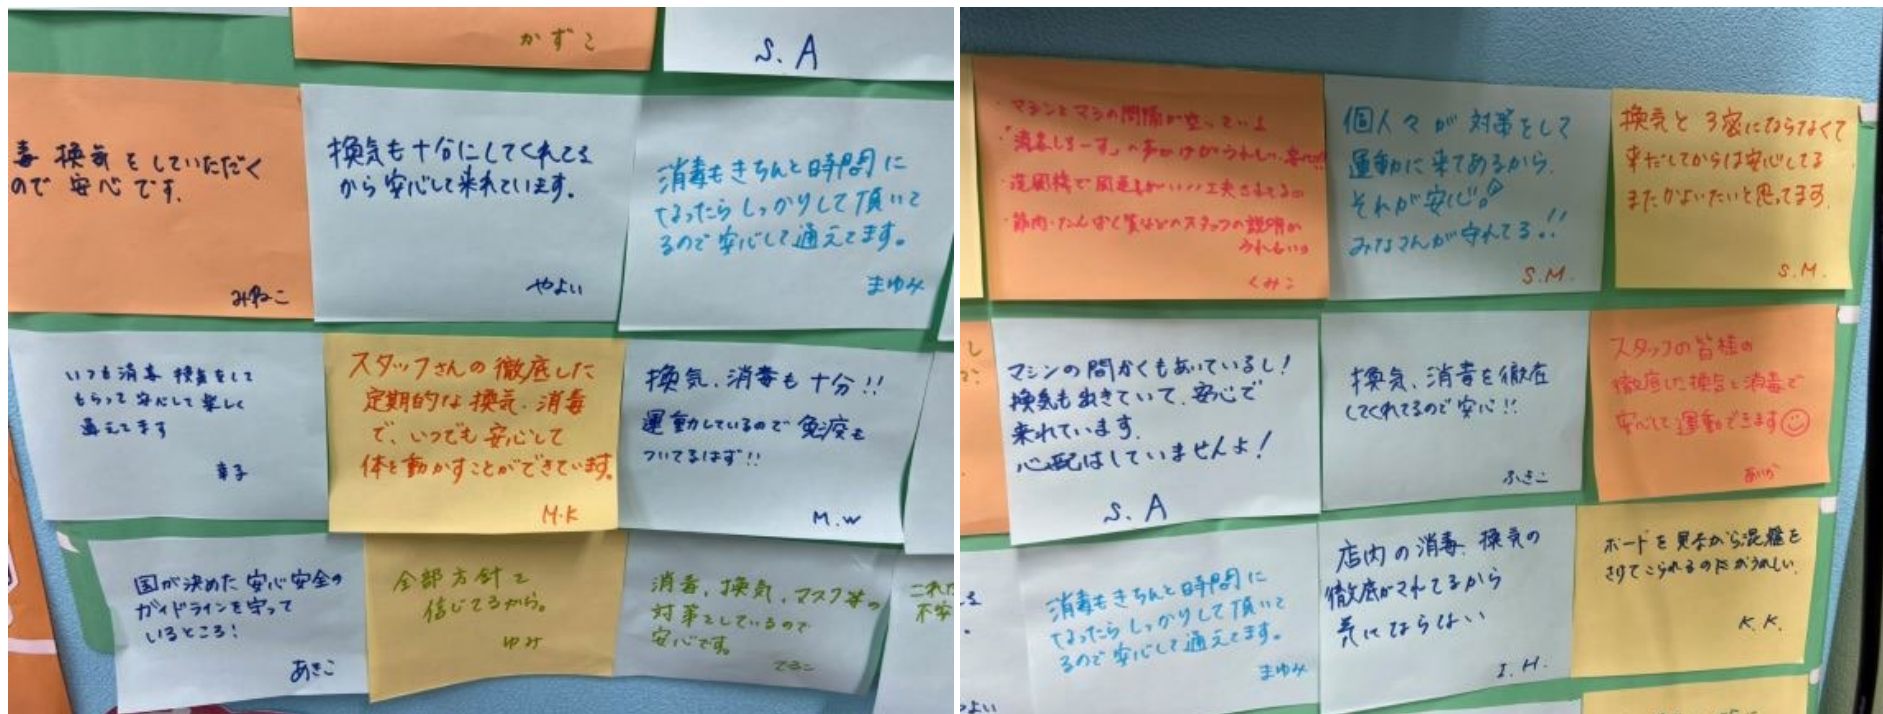 かずこ
S.A
毒 換気をしていただく
ので 安心です。
みねこ
換気も十分にしてくれてる
から安心して来れています。
やよい
消毒もきちんと時間に
なったらしっかりして頂いて
るので安心して通えてます。
まゆみ
いつも消毒 換気をして
もらって安心して楽しく
通えてます
幸子
スタッフさんの徹底した
定期的な換気、消毒
で、いつでも安心して
体を動かすことができています。
M.K
換気、消毒も十分!!
運動しているので免疫も
ついてるはず!!
M.W
国が決めた安心安全の
ガイドラインを守って
いるところ!
あきこ
全部方針を
信じてるから。
ゆみ
消毒、換気、マスク等の
対策をしているので
安心です。
てるこ
これだ
不安
・マシンとマシの間隔が空っている
・「消毒しまーす」の声かけがうれしい、安心!!
工夫されてるの
・筋肉・たんぱく質などのスタッフの説明が
うれしい。
くみこ
個人々が対策をして
運動に来てあるから、
それが安心。
みなさんが守れてる!!
S.M.
換気と3密にならなくて
来だしてからは安心してる
またかよいたいと思ってます。
S.M.
マシンの間かくもあいているし!
換気も出きていて、安心で
来れています。
心配はしていませんよ!
S.A
換気、消毒を徹底
してくれてるので安心!!
ふきこ
スタッフの皆様の
徹底した換気と消毒で
安心して運動できます
あいか
消毒もきちんと時間に
なったらしっかりして頂いて
るので安心して通えてます。
まゆみ
店内の消毒、換気の
徹底がされてるから
気にならない
I.H.
ボードを見ながら混雑を
さけてこられるのがうれしい。
K.K.
よい